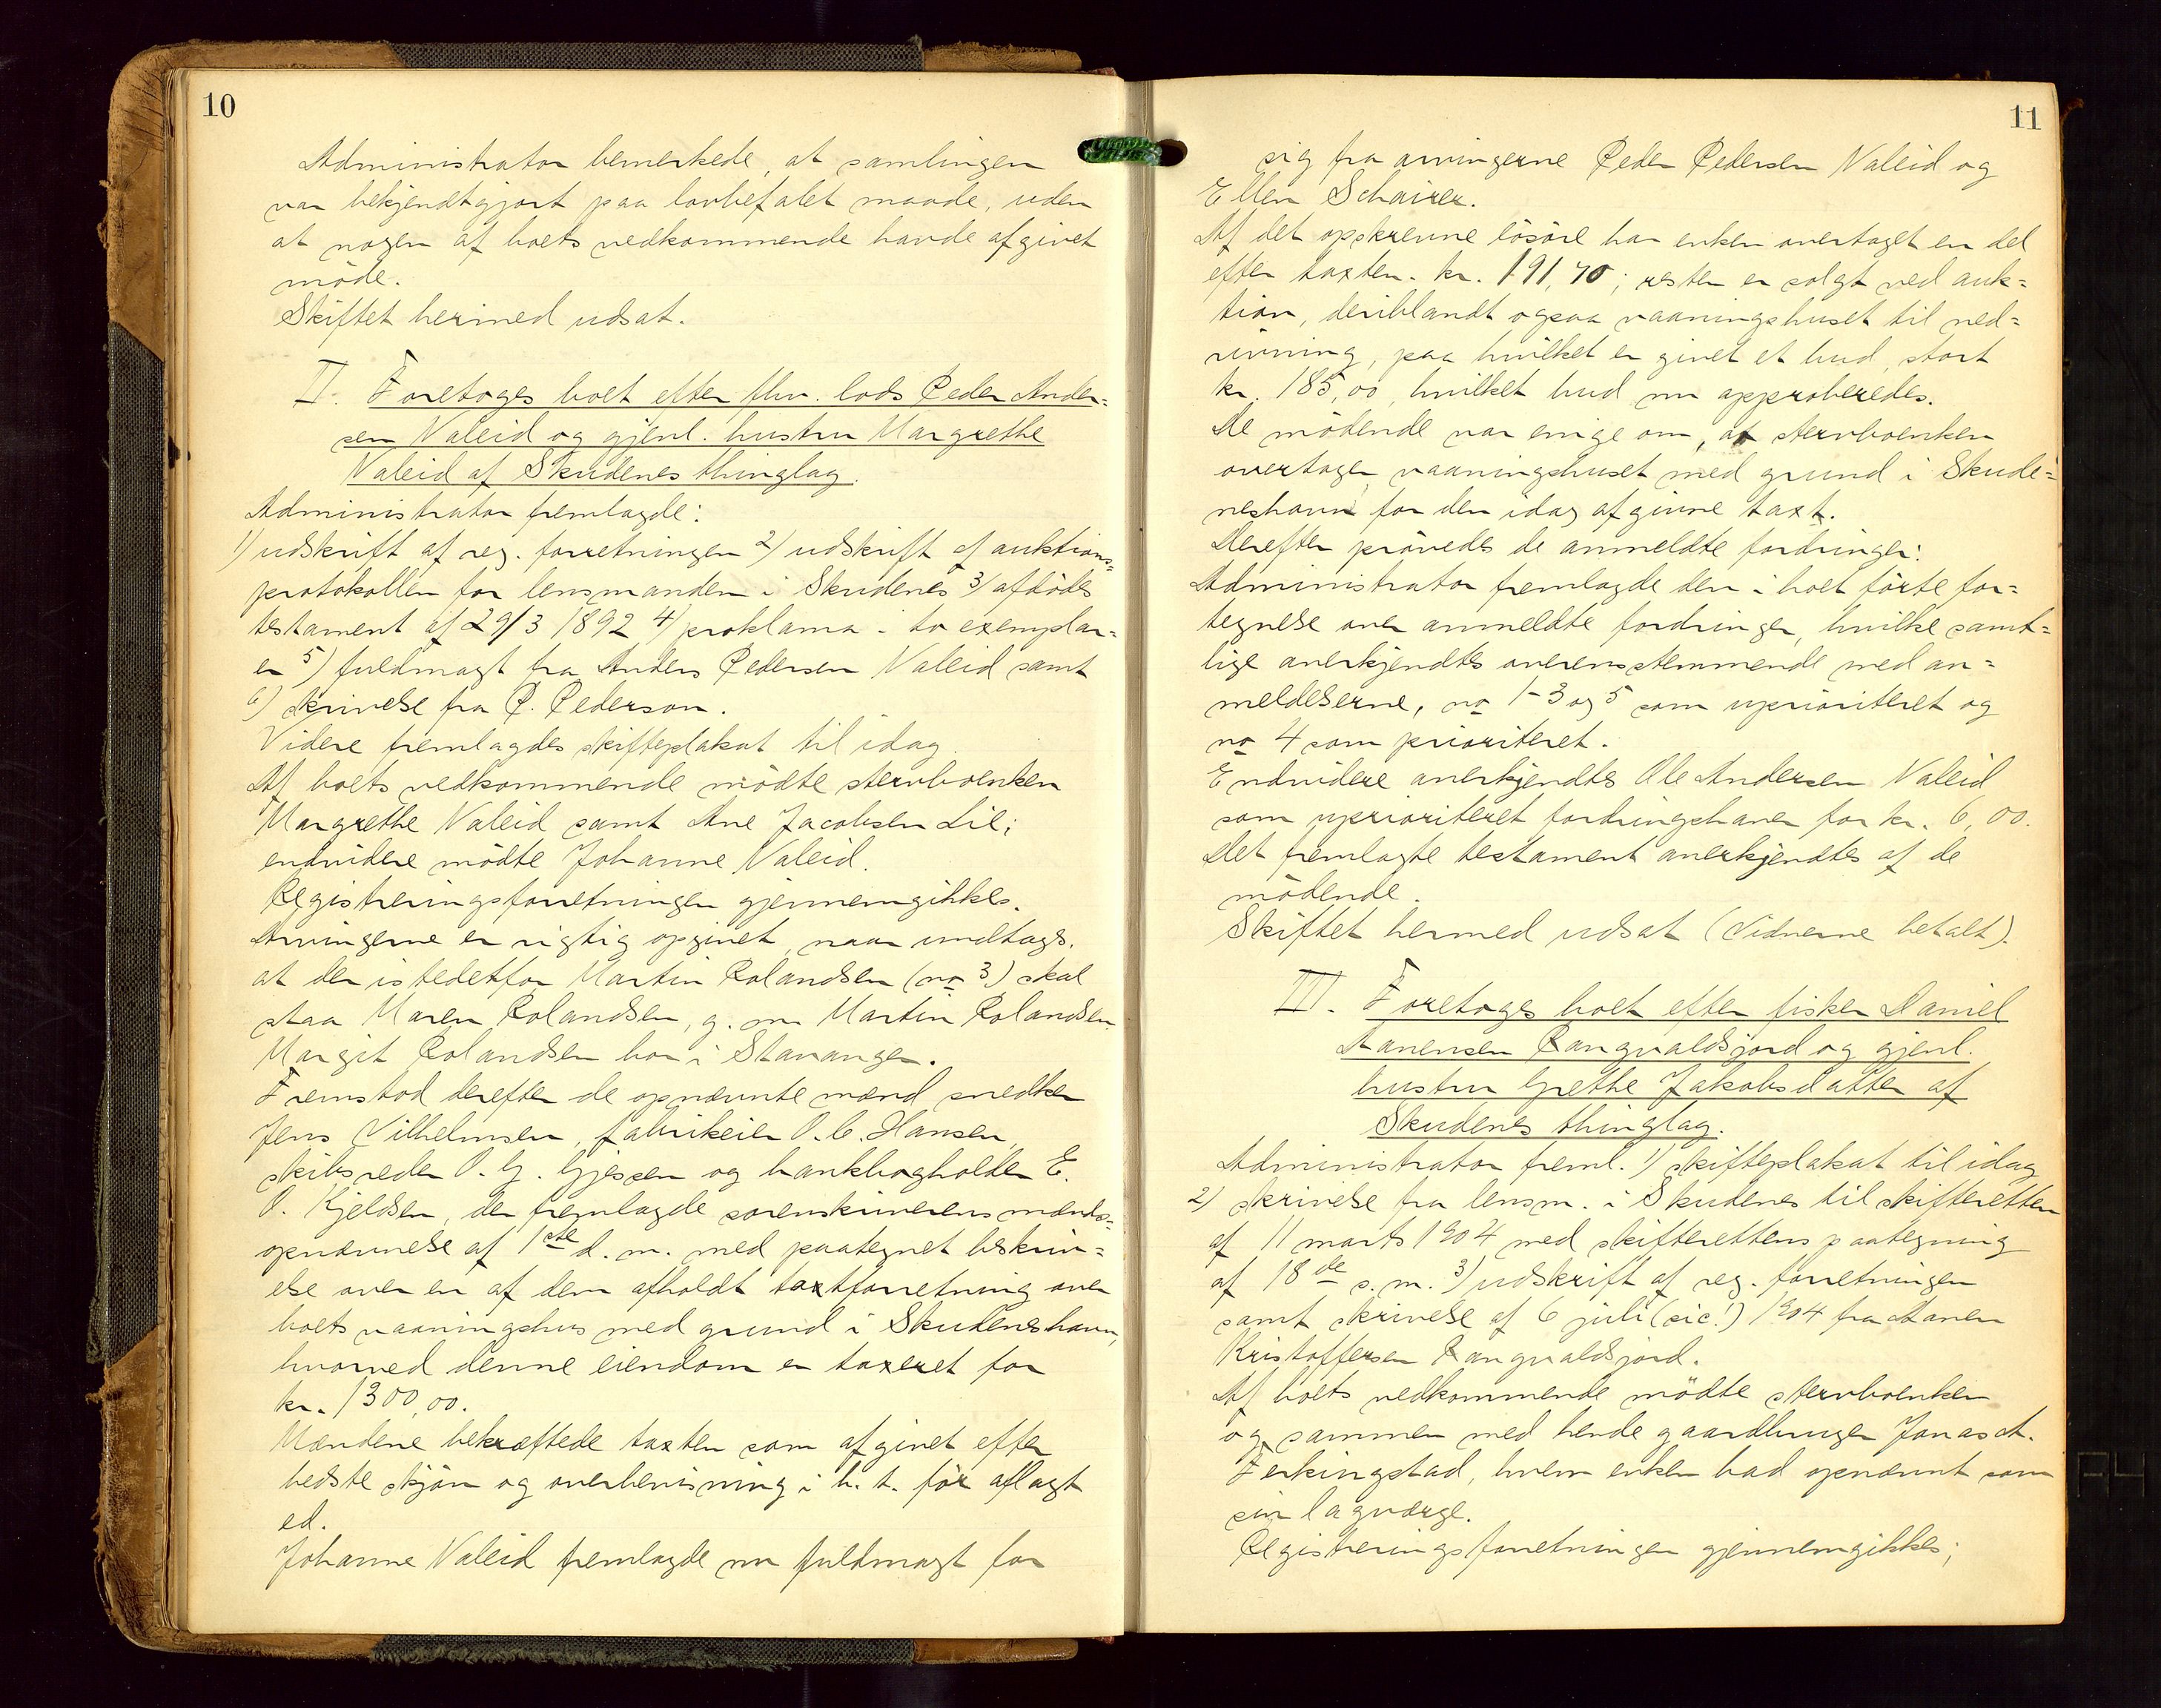 10
Administrator bemerkede, at samlingen
var bekjendtgjort paa lovbefalet maade, uden
at nogen af boets vedkommende havde afgivet
møde.
Skiftet hermed udsat.
II. Foretoges boet efter fhv. lods Peder Ander=
sen Valeid og gjenl. hustru Margrethe
Valeid af Skudenes thinglag.
Administrator fremlagde:
1) udskrift af reg. forretningen 2) udskrift af auktions=
protokollen for lensmanden i Skudenes 3) afdødes
testament af 29/3 1892 4) proklama i to exemplar=
er 5) fuldmagt fra Anders Pedersen Valeid samt
6) skrivelse fra P. Pederson.
Videre fremlagdes skifteplakat til idag.
Af boets vedkommende mødte stervboenken
Margrethe Valeid samt Ane Jacobsen Lie;
endvidere mødte Johanne Valeid.
Registreringsforretningen gjennemgikkes.
Arvingerne er rigtig opgivet, naar undtages,
at der istedetfor Martin Rolandsen (no 3) skal
staa Maren Rolandsen, g. m. Martin Rolandsen
Margit Rolandsen bor i Stavanger.
Fremstod derefter de opnævnte mænd snedker
Jens Vilhelmsen, fabrikeier O. C. Hansen,
skibsreder O. G. Gjessen og bankbogholder E.
O. Kjeldsen, der fremlagde sorenskriverens mænds=
opnævnelse af 1ste d. m. med paategnet beskriv=
else over en af dem afholdt taxtforretning over
boets vaaningshus med grund i Skudeneshavn,
hvorved denne eiendom er taxeret for
kr. 1300,00.
Mændene bekræftede taxten som afgivet efter
bedste skjøn og overbevisning i h. t. før aflagt
ed.
Johanne Valeid fremlagde nu fuldmagt for
11
sig fra arvingerne Peder Pedersen Valeid og
Ellen Schairer.
Af det opskrevne løsøre har enken overtaget en del
efter taxten. kr. 191,70; resten er solgt ved auk=
tion, deriblandt ogsaa vaaningshuset til ned=
rivning, paa hvilket er givet et bud, stort
kr. 185,00, hvilket bud nu approberedes.
De mødende var enige om, at stervboenken
overtager vaaningshuset med grund i Skude=
neshavn for den idag afgivne taxt.
Derefter prøvedes de anmeldte fordringer:
Administrator fremlagde den i boet førte for=
tegnelse over anmeldte fordringer, hvilke samt=
lige anerkjendtes overensstemmende med an=
meldelserne, no 1-3 og 5 som uprioriteret og
no 4 som prioriteret.
Endvidere anerkjendtes Ole Andersen Valeid
som uprioriteret fordringshaver for kr. 6,00.
Det fremlagte testament anerkjendtes af de
mødende.
Skiftet hermed udsat (Vidnerne betalt).
III. Foretoges boet efter fisker Daniel
Aanensen Rangvaldsjord og gjenl.
hustru Grethe Jakobsdatter af
Skudenes thinglag.
Administrator freml. 1) skifteplakat til idag
2) skrivelse fra lensm. i Skudenes til skifteretten
af 11 marts 1904 med skifterettens paategning
af 18de s. m. 3) udskrift af reg. forretningen
samt skrivelse af 6 juli (sic!) 1904 fra Aanen
Kristoffersen Rangvaldsjord.
Af boets vedkommende mødte stervboenken
og sammen med hende gaardbruger Jonas A.
Ferkingstad, hvem enken bad opnævnt som
sin lagværge.
Registreringsforretningen gjennemgikkes;